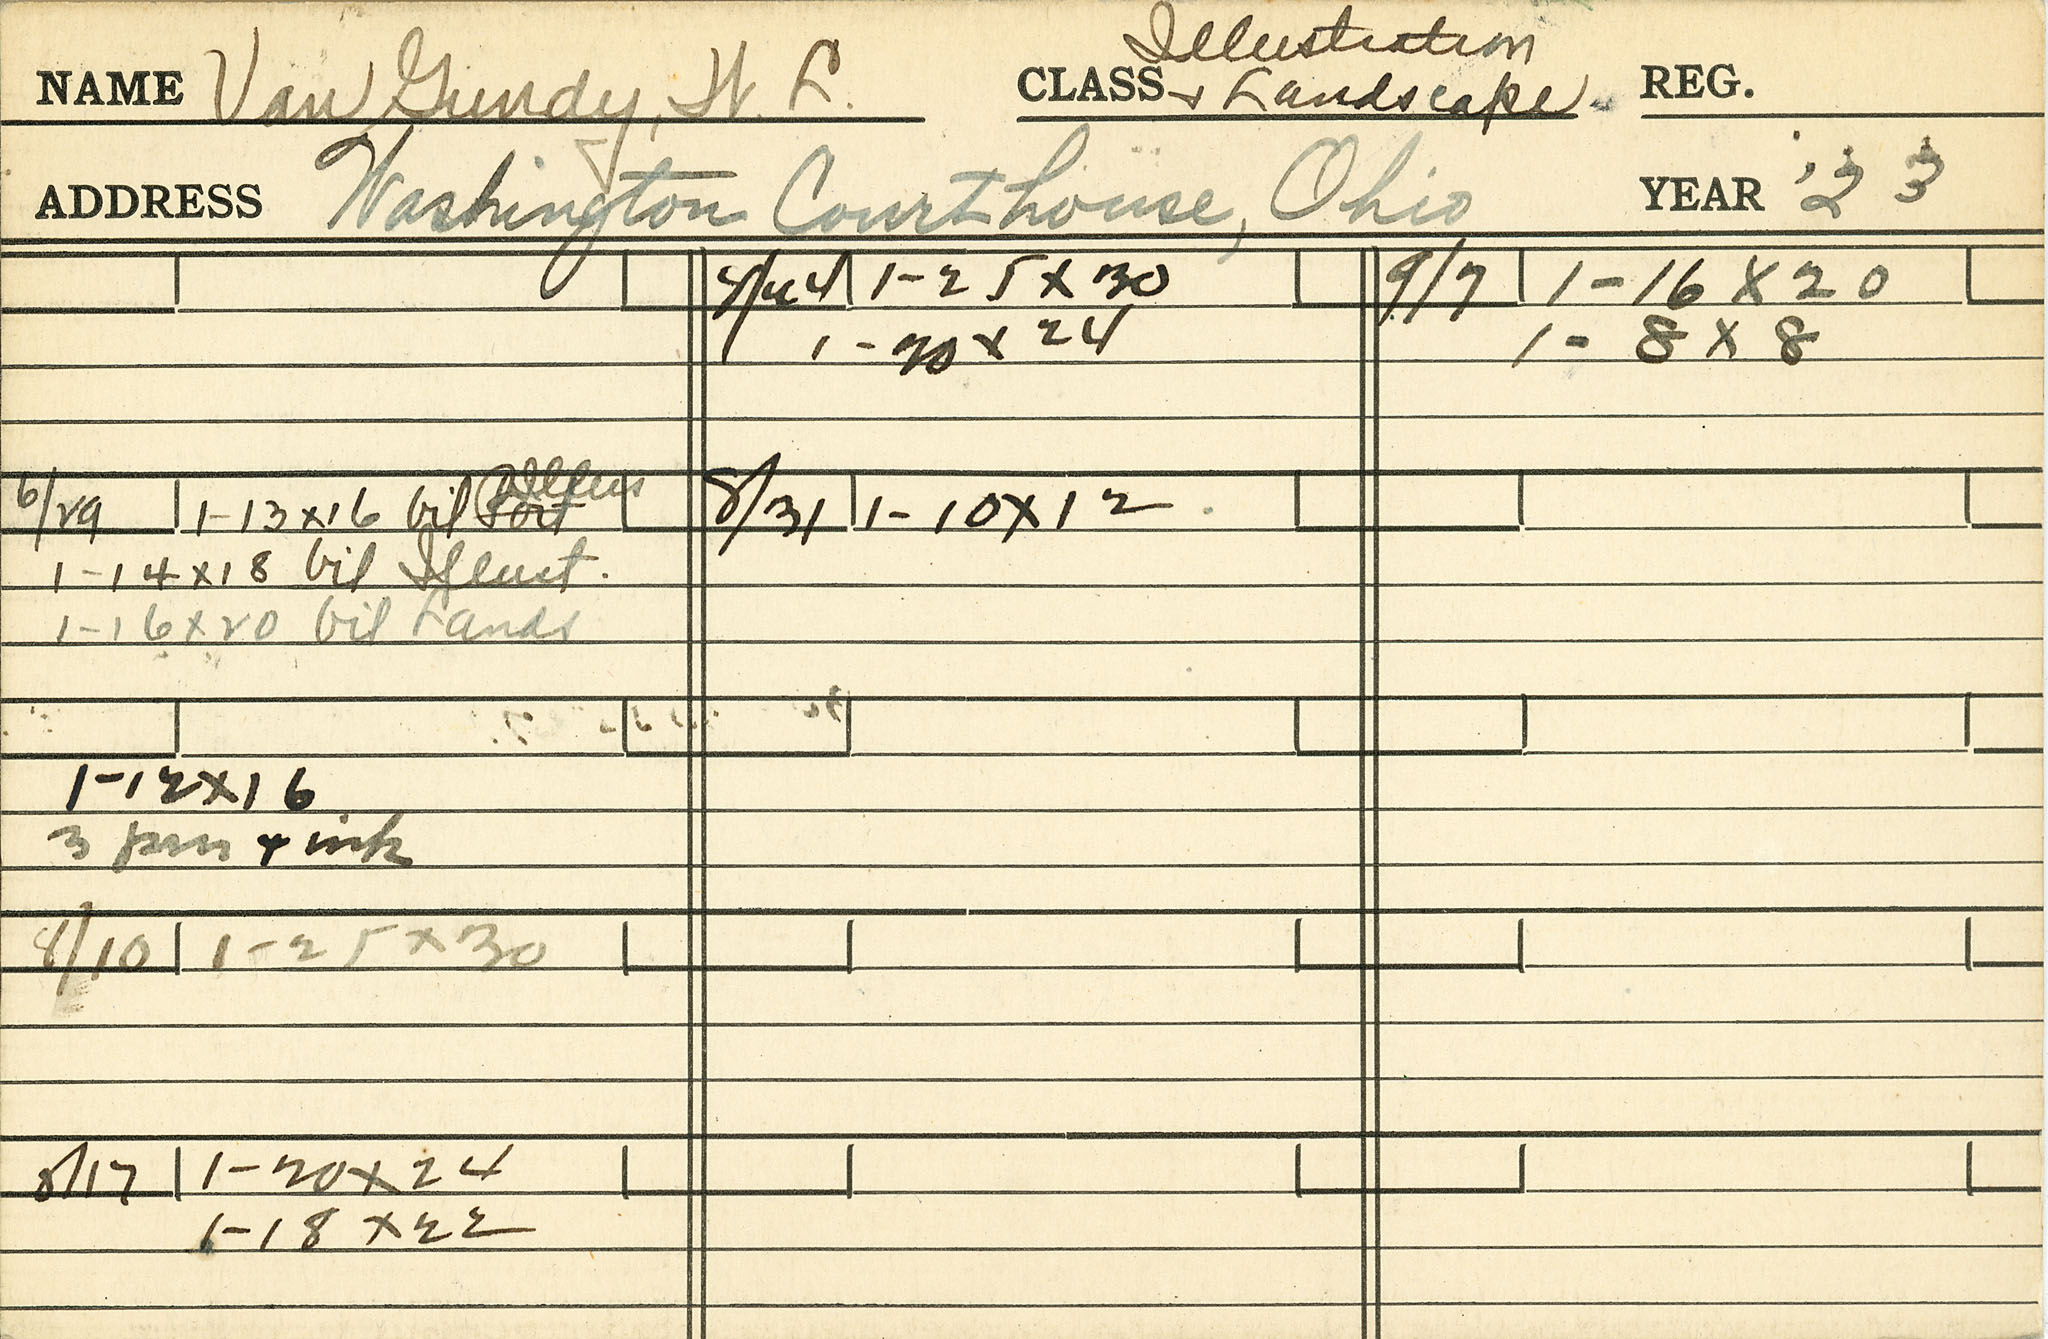 NAME Van Gundy, W. L. CLASS Illustration & Landscape REG.
ADDRESS Washington Courthouse, Ohio YEAR '23
6/29 1-13x16 oil Port Illus
1-14x18 oil Illust.
1-16x20 oil Lands
1-12x16
3 pen & ink
8/10 1-25x30
8/17 1-20x24
1-18x22
8/24 1-25x30
1-20x24
8/31 1-10x12
9/7 1-16x20
1-8x8